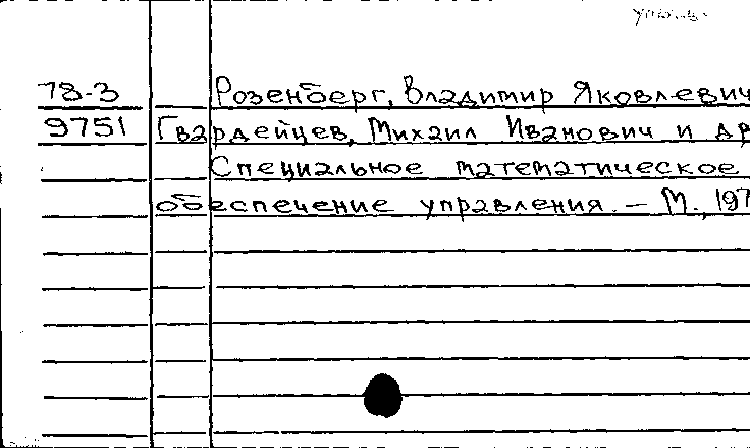 78-3 Розенберг, Владимир Яковлевич
9751 Гвардейцев, Михаил Иванович и др
Специальное математическое
обеспечение управления. – М., 197